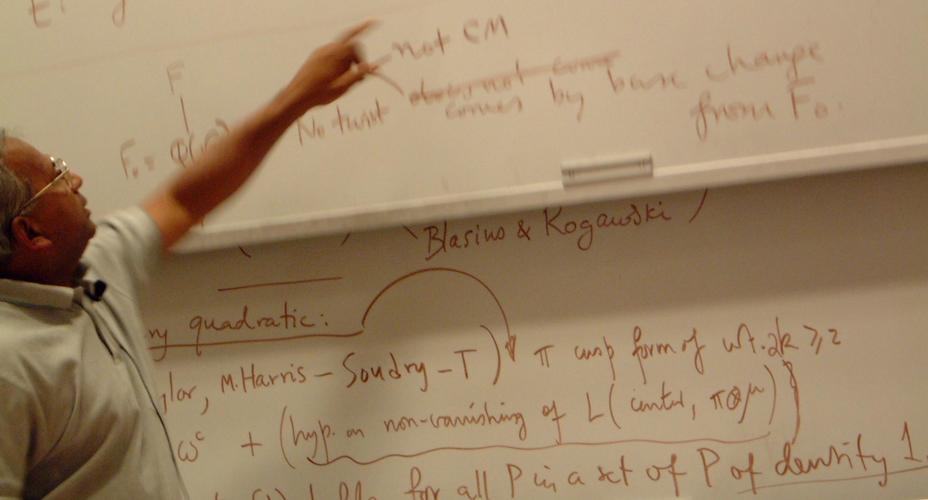 not CM
F
No twist ~~does not come~~ comes by base change
F₀ =
from F₀.
Blasius & Rogawski
ry quadratic:
lor, M. Harris – Soudry – T) π cusp form of wt. 2k ≥ 2
ω^c + (hyp. on non-vanishing of L(center, π⊗μ))
for all P in a set of P of density 1.